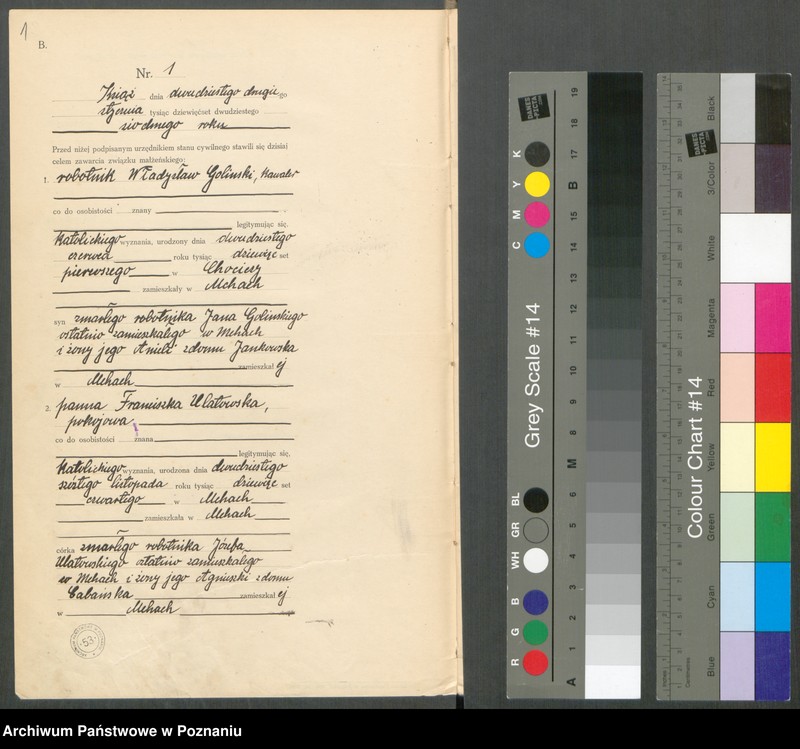 1
B.
Nr. 1
Książ dnia dwudziestego drugiego
stycznia tysiąc dziewięćset dwudziestego
siodmego roku
Przed niżej podpisanym urzędnikiem stanu cywilnego stawili się dzisiaj
celem zawarcia związku małżeńskiego:
1. robotnik Władysław Golinski, kawaler
co do osobistości znany
legitymując się.
katolickiego wyznania, urodzony dnia dwudziestego
czerwca roku tysiąc dziewięćset
pierwszego w Chociczy
zamieszkały w Mchach
syn zmarłego robotnika Jana Golinskiego
ostatnio zamieszkałego w Mchach
i żony jego Anieli zdomu Jankowska
zamieszkałej
w Mchach
2. panna Franiszka Ulatowska,
pokojowa
co do osobistości znana
legitymując się.
katolickiego wyznania, urodzona dnia dwudziestego
szóstego listopada roku tysiąc dziewięćset
czwartego w Mchach
zamieszkała w Mchach
córka zmarłego robotnika Józefa
Ulatowskiego ostatnio zamieszkałego
w Mchach i żony jego Agnieszki zdomu
Cabańska zamieszkałej
w Mchach
53
Grey Scale #14
DANES
PICTA
.COM
C M Y K
R G B WH GR BL
A 1 2 3 4 5 6 M 8 9 10 11 12 13 14 15 B 17 18 19
Colour Chart #14
DANES
PICTA
.COM
Blue Cyan Green Yellow Red Magenta White 3/Color Black
Archiwum Państwowe w Poznaniu